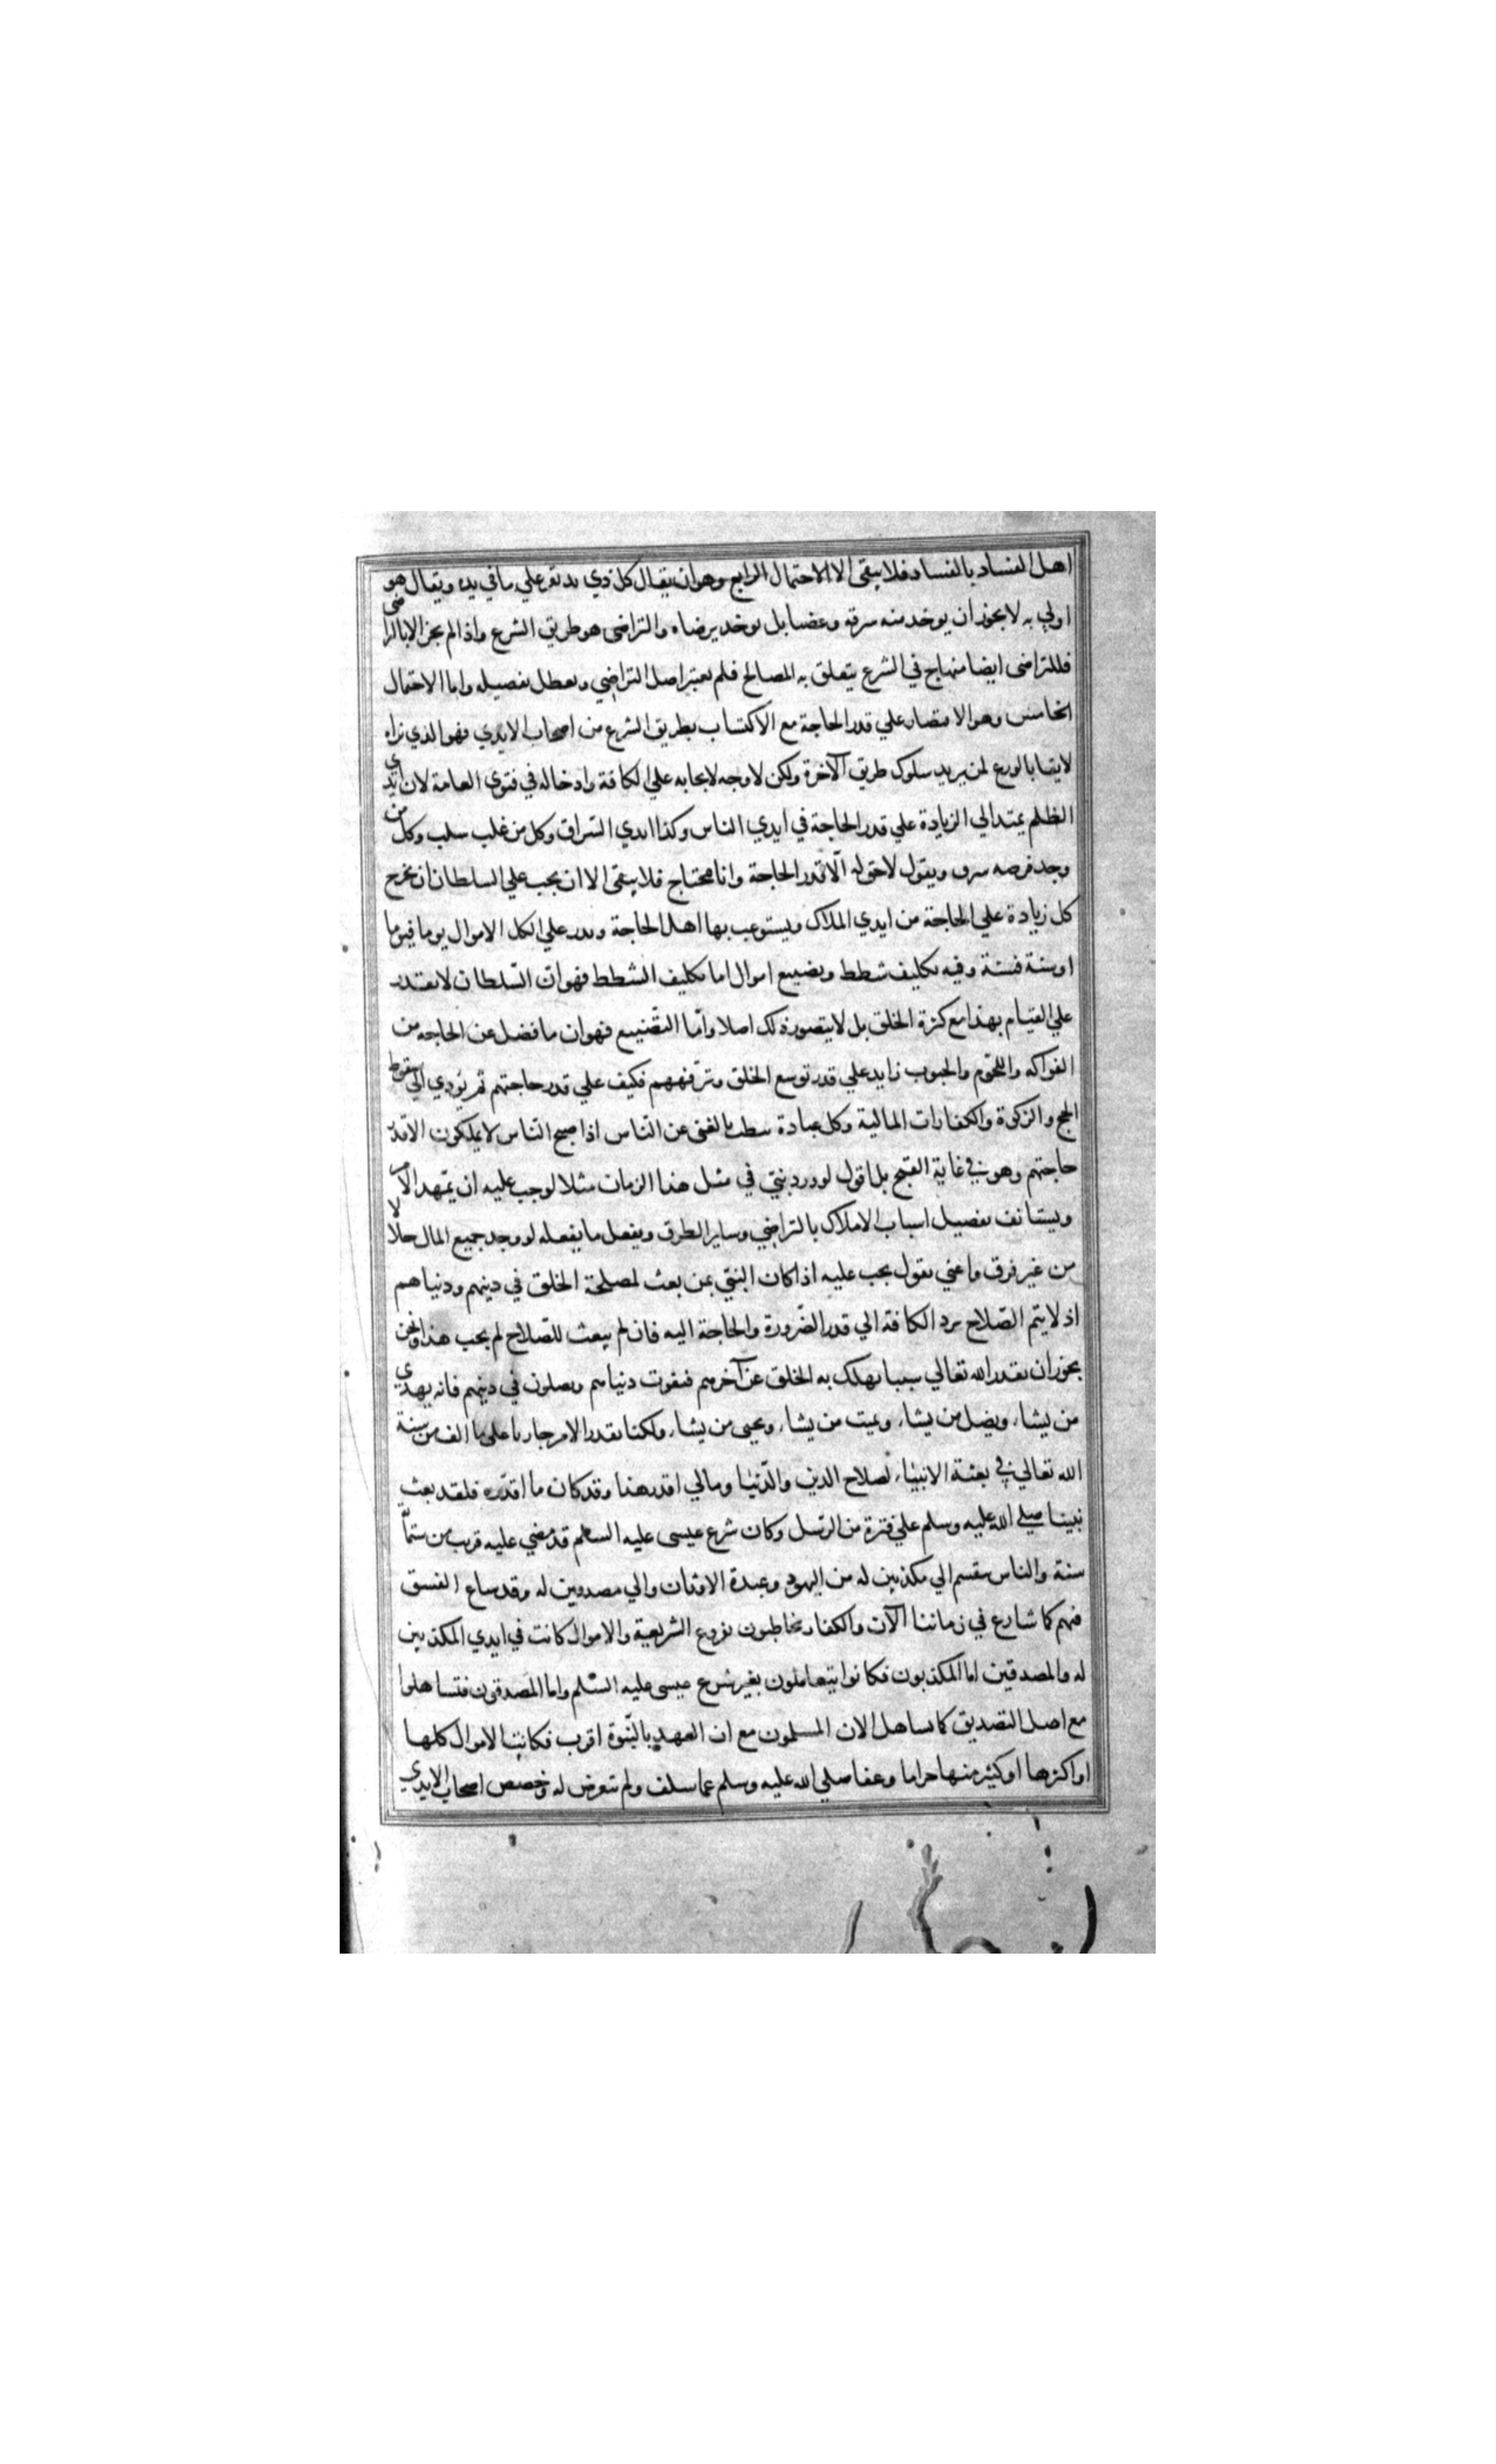 اهل الفساد بالفساد فلا يبقى الا الاحتمال الرابع وهو ان يقال كل ذي يد يقر علي ما في يده ويقال هو
اولي به لا يجوز ان يوخد منه سرقه وغصبا بل يوخد برضاه والتراضى هو طريق الشرع واذا لم يجز الا بالتراضى
فللتراضى ايضا منهاج في الشرع يتعلق به المصالح فلم يعتبر اصل التراضي وبعطل تفصيله واما الاحتمال
الخامس وهو الاقتصار علي قدر الحاجة مع الاكتساب بطريق الشرع من اصحاب الايدي فهو الذي نراه
لايقا بالورع لمن يريد سلوك طريق الآخرة ولكن لا وجه لايجابه علي الكافة وادخاله في فتوى العامة لان ايدي
الظلم يمتد الي الزيادة علي قدر الحاجة في ايدي الناس وكذا ايدي السراق وكل من غلب سلب وكل من
وجد فرصه سرق ويقول لا حق له الّا قدر الحاجة وانا محتاج فلا يبقى الا ان يجب علي السلطان ان يخرج
كل زيادة علي الحاجة من ايدي الملاك ويستوعب بها اهل الحاجة ويدر علي الكل الاموال يوما فيوما
او سنة فسنة وفيه تكليف شطط وتضييع اموال اما تكليف الشطط فهو انّ السّلطان لا يقدر
علي القيام بهذا مع كثرة الخلق بل لا يتصور ذلك اصلا وامّا التّضييع فهو ان ما فضل عن الحاجه من
الفواكه واللحوم والحبوب زايد علي قدر توسع الخلق وترفههم فكيف علي قدر حاجتهم ثم يؤدي الي سقوط
الحج والزكوة والكفارات المالية وكل عبادة نيطت بالغنى عن النّاس اذا اصبح النّاس لا يملكون الا قدر
حاجتهم وهو في غاية القبح بل اقول لو ورد نبيّ في مثل هذا الزمان مثلا لوجب عليه ان يمّهد الامر
ويستانف تفصيل اسباب الاملاك بالتراضي وساير الطرق ويفعل ما يفعله لو وجد جميع المال حلالا
من غير فرق واعني بقول يجب عليه اذا كان النبيّ ممن بعث لمصلحة الخلق في دينهم ودنياهم
اذ لا يتم الصّلاح برد الكافة الي قدر الضّرورة والحاجة اليه فان لم يبعث للصّلاح لم يجب هذا ونحن
يجوز ان يقدر الله تعالي سببا يهلك به الخلق عن آخرهم فيفوت دنياهم ويضلون في دينهم فانه يهدي
من يشاء ويضل من يشاء ويميت من يشاء ويحيى من يشاء ولكنا نقدر الامر جاريا على ما الف من سنة
الله تعالي في بعثة الانبياء لصلاح الدين والدّنيا ومالي اقدر هذا وقد كان ما اقدّره فلقد بعث
نبينا صلى الله عليه وسلم علي فترة من الرّسل وكان شرع عيسى عليه السلم قد مضي عليه قريب من ستمائة
سنة والناس منقسم الي مكذبين له من اليهود وعبدة الاوثان والي مصدقين له وقد ساع الفسق
فيهم كما شارع في زماننا الآن والكفار مخاطبون بفروع الشريعة والاموال كانت في ايدي المكذبين
له والمصدقين اما المكذبون فكانوا يتعاملون بغير شرع عيسى عليه السّلم واما المصدقون فتساهلوا
مع اصل التصديق كما تساهل الان المسلمون مع ان العهد بالنّبوة اقرب فكانت الاموال كلها
او اكثرها او كثير منها حراما وعفا صلى الله عليه وسلم عما سلف ولم يتعرض له وخصص اصحاب الايدي